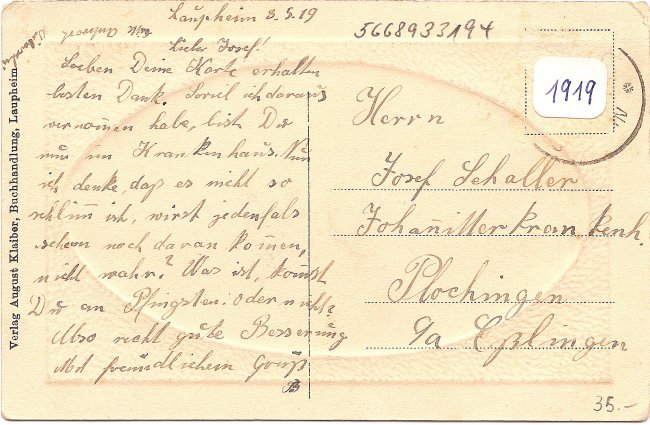 Laupheim 3.5.19
Lieber Josef!
Soeben Deine Karte erhalten
besten Dank. Soviel ich daraus
vernommen habe, bist Du
nun im Krankenhaus. Nun
ich denke daß es nicht so
schlimm ist, wirst jedenfals
schon noch davan kommen,
nicht wahr? Was ist, kommst
Du an Pfingsten oder nicht?
Also recht gute Besserung
Mit freundlichem Gruß
B
5668933194
1919
Herrn
Josef Schaller
Johannitterkrankenh.
Plochingen
a/a Eßlingen
35.-
Verlag August Klaiber, Buchhandlung, Laupheim